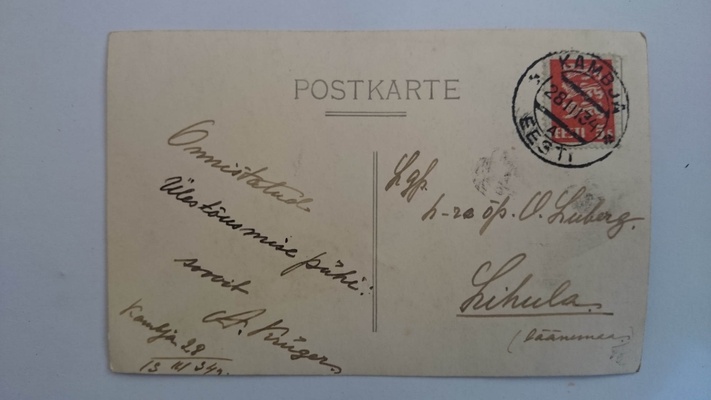 POSTKARTE
KAMBJA
28 III 34
A
EESTI
EESTI 5 s
Õnnistatud
Ülestõusmise pühi!
soovit
A. Krüger
Kambja 28
III 34a.
Lgp.
h-ra õp. O. Luberg.
Lihula.
(Läänemaa)